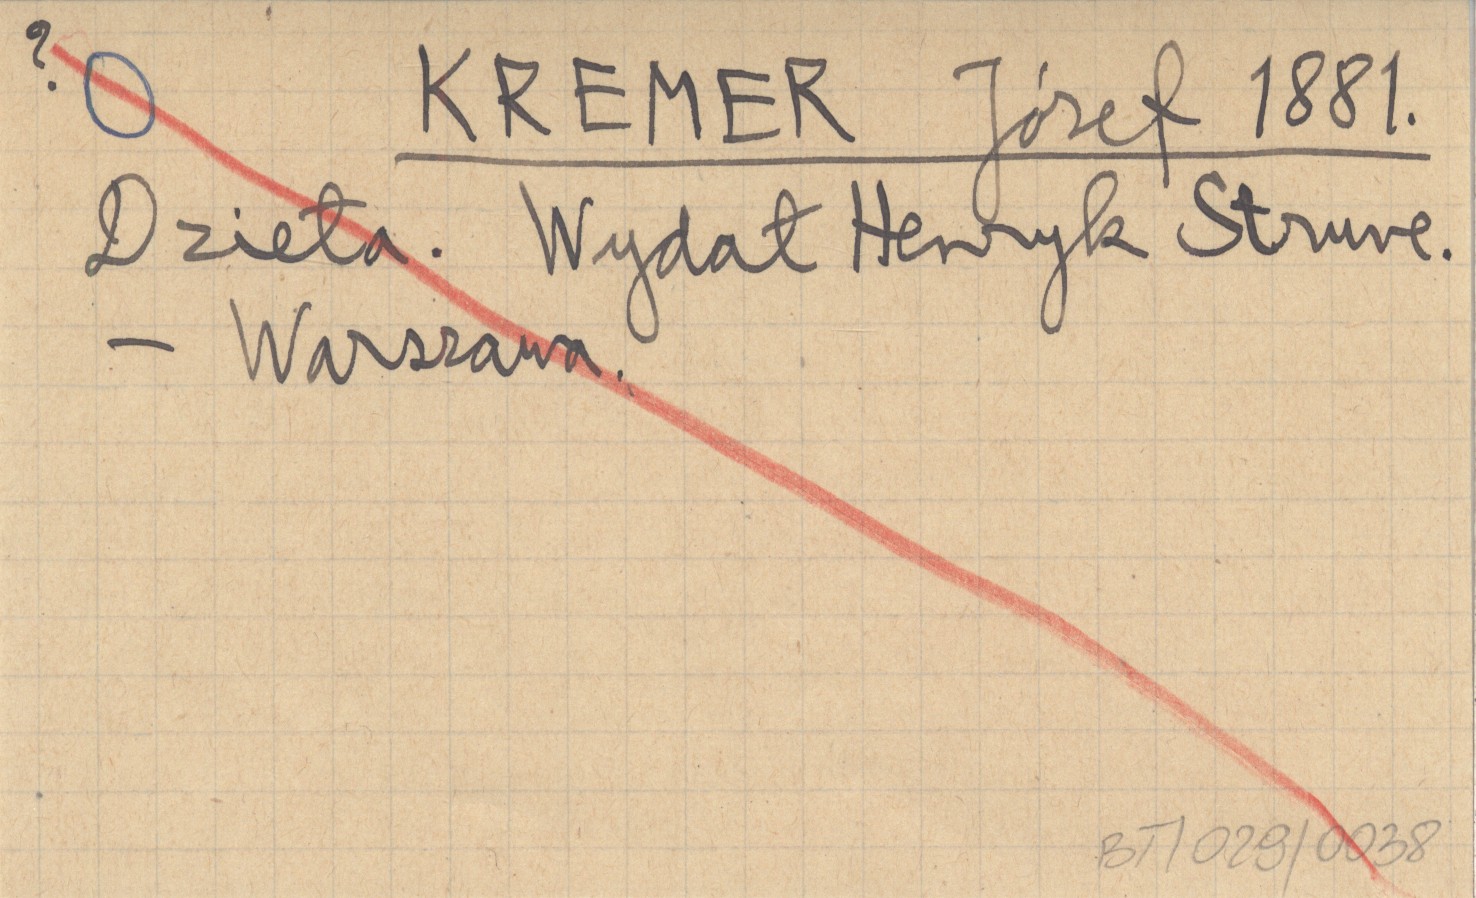 ?
KREMER Józef 1881.
Dzieła. Wydał Henryk Struve.
— Warszawa.
BT/029/0038